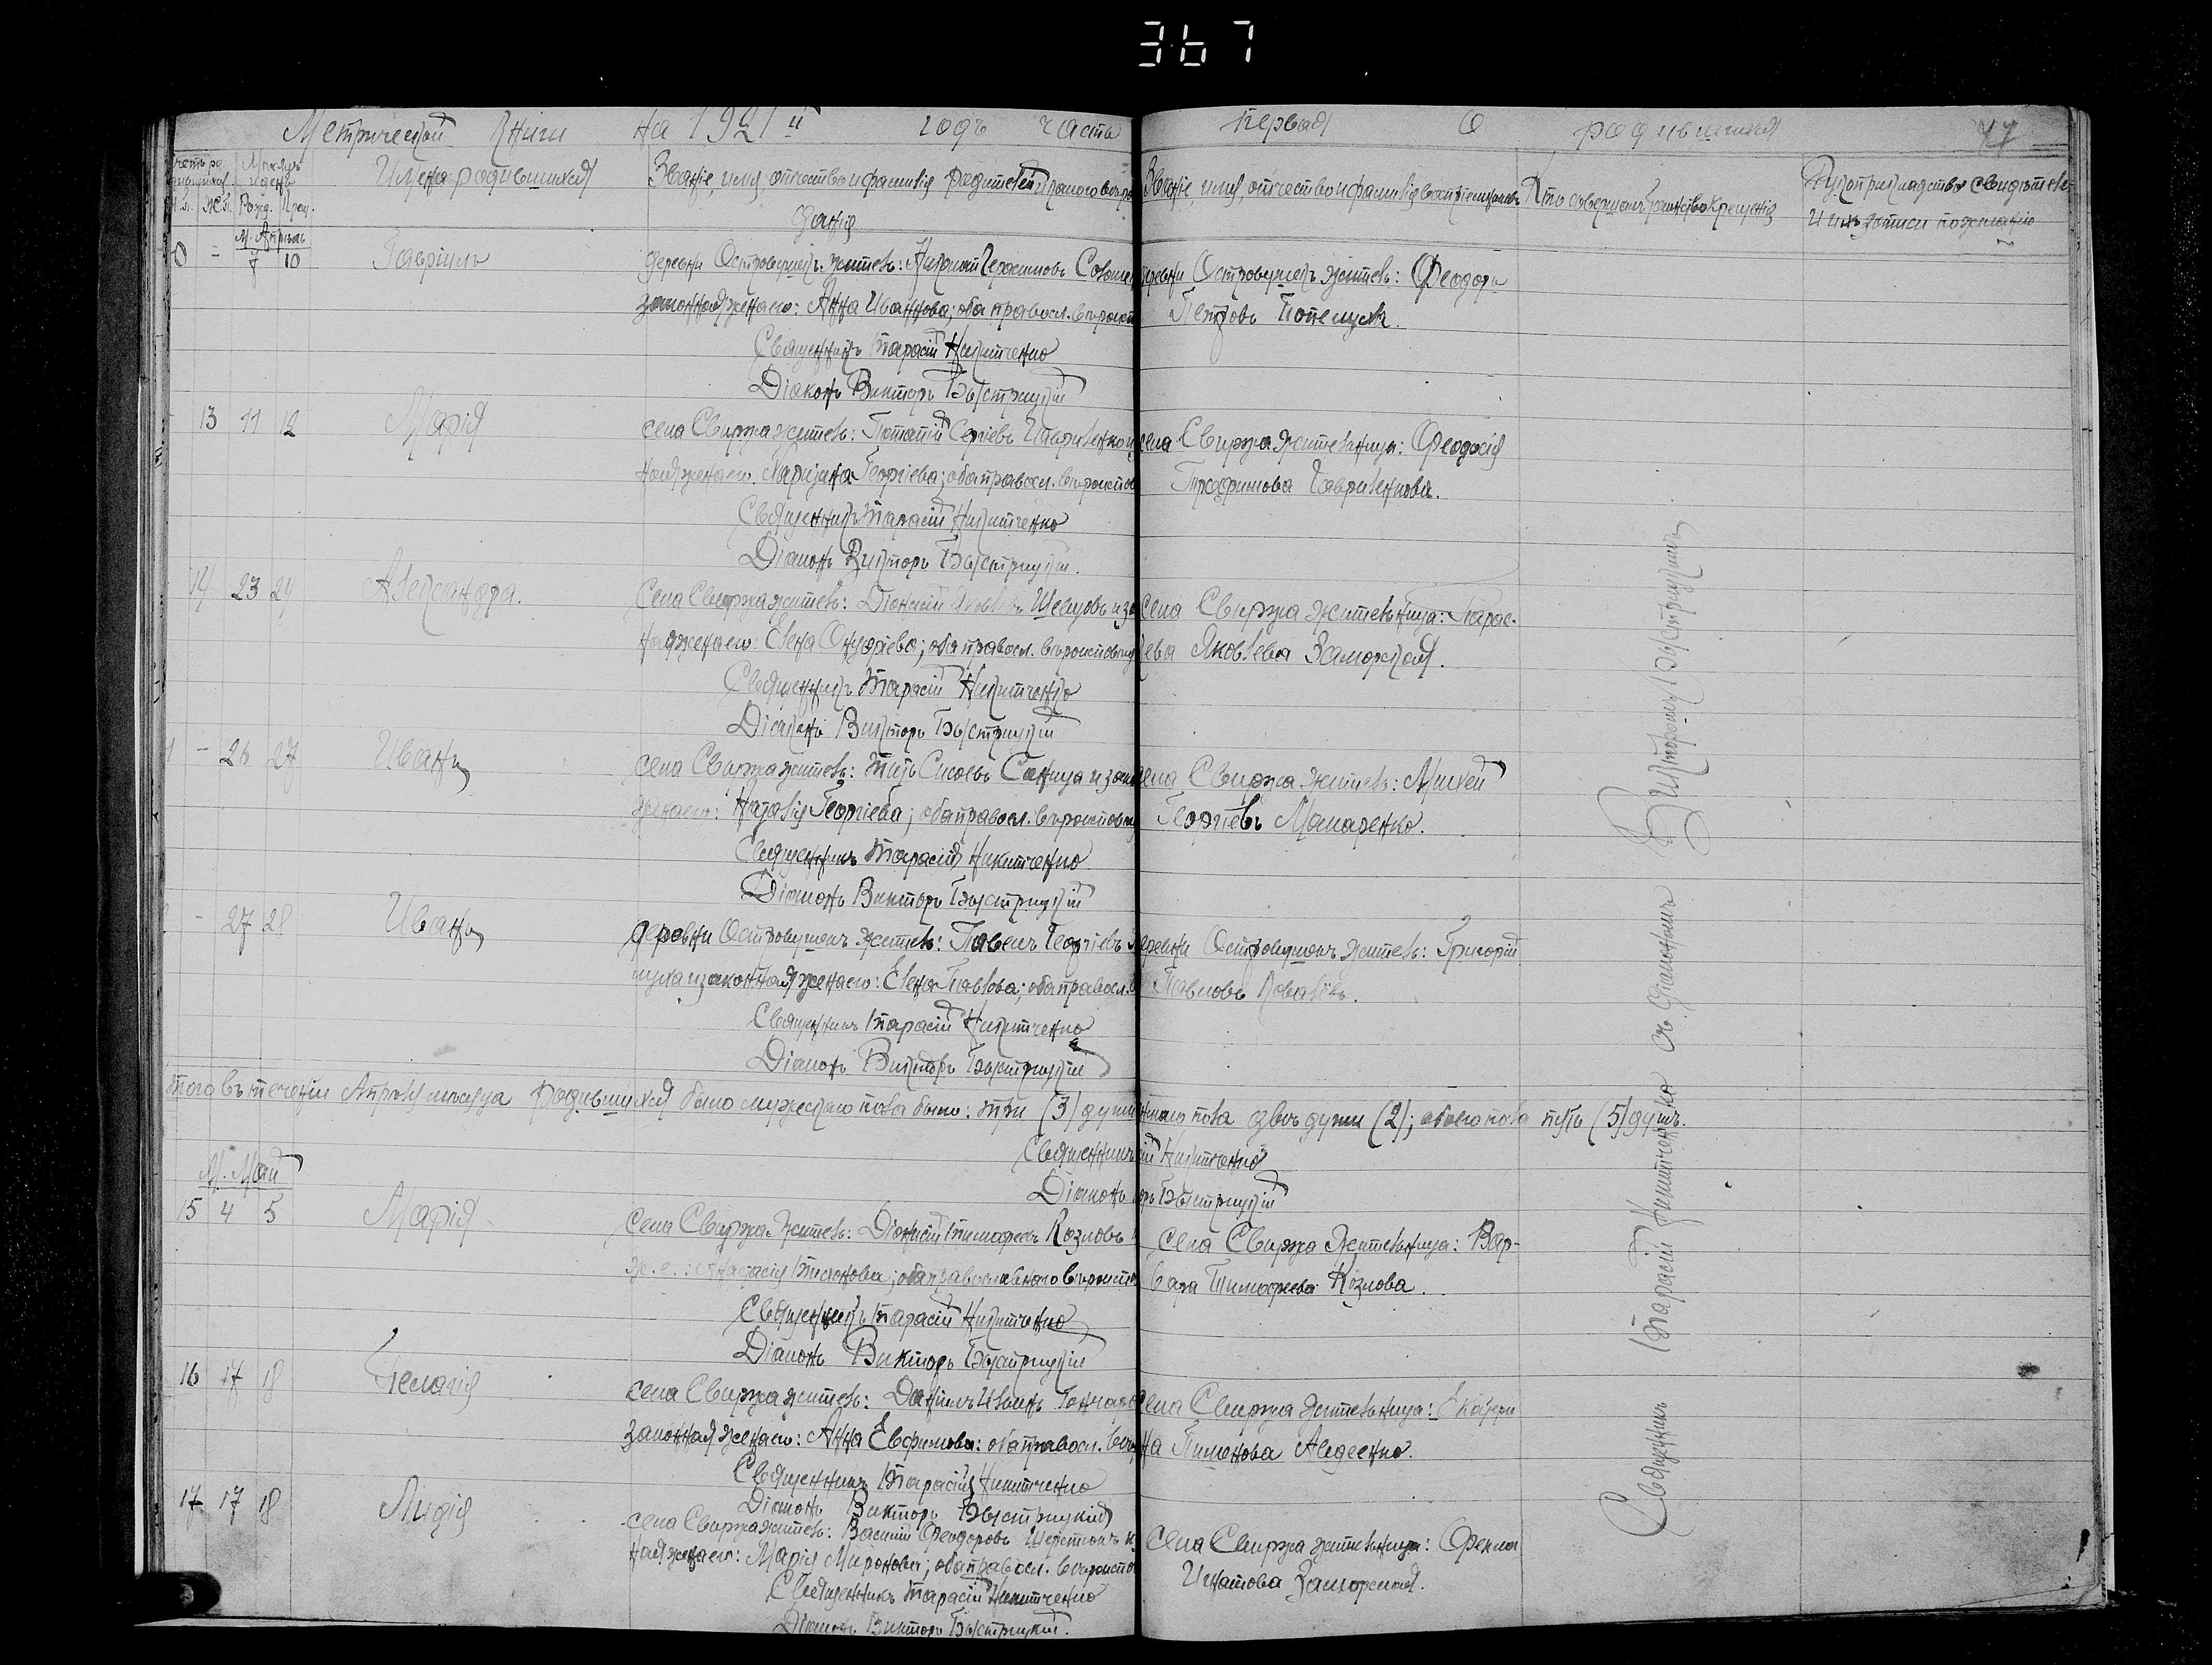 367
Метрической книги на 1921 й годъ часть первая о родившихся 47
Имена родившихся
Званіе, имя, отчество и фамилія родителей и какого вѣро
Званіе, имя, отчество и фамилія воспріемниковъ
Кто совершалъ таинство крещенія
Рукоприкладство свидѣтеле
данія
и ихъ записи по желанію
м. Апрѣль
0 - 7 10 Гавріилъ
деревни Островушекъ житель:
законная жена его: Анна Иванова; оба правосл. вѣроисп
Священникъ Тарасій Никитченко
Діаконъ Викторъ Быстрицкій
деревни Островушекъ житель: Феодоръ
Петровъ
13 11 12 Марія
села Свиржа житель: Потапій Сергіевъ
ная жена его: Марина Георгіева; оба правосл. вѣроиспов
Священникъ Тарасій Никитченко
Діаконъ Викторъ Быстрицкій.
села Свиржа жительница: Феодосія
Трофимова Гавриленкова.
14 23 24 Александра.
села Свиржа житель: Діонисій Яковлевъ Шевцовъ и за
ная жена его: Елена Онуфріева; оба правосл. вѣроисповѣд
Священникъ Тарасій Никитченко
Діаконъ Викторъ Быстрицкій
села Свиржа жительница: Парас-
ева Яковлева Заморская.
1 - 26 27 Иванъ
села Свиржа житель: Титъ Сысоевъ Саница и зак
жена его: Наталія Георгіева; оба правосл. вѣроисповѣ
Священникъ Тарасій Никитченко
Діаконъ Викторъ Быстрицкій
села Свиржа житель: Михей
Георгіевъ Макаренко.
- 27 28 Иванъ
деревни Островушекъ житель: Павелъ Георгіевъ
и законная жена его: Елена Павлова; оба правосл.
Священникъ Тарасій Никитченко
Діаконъ Викторъ Быстрицкій
деревни Островушекъ житель: Григорій
Павловъ Ковалевъ.
того въ теченіи Апрѣля мѣсяца родившихся было мужескаго пола было: три (3) души женскаго пола двѣ души (2); обоего пола пять (5) душъ.
Священникъ Никитченко
Діаконъ Быстрицкій
М. Май
15 4 5 Марія
села Свиржа житель: Діонисій Тимофеевъ Козловъ
ж. е.: Анастасія Тихонова; оба православнаго вѣроиспо
Священникъ Тарасій Никитченко
Діаконъ Викторъ Быстрицкій
села Свиржа жительница: Вар-
вара Тимофеева Козлова.
16 17 18 Пелагія
села Свиржа житель: Даніилъ Ивановъ Гончаро
законная жена его: Анна Евфимова: оба правосл. вѣро
Священникъ Тарасій Никитченко
Діаконъ Викторъ Быстрицкій
села Свиржа жительница: Екатери
на Пименова Авдеенко.
17 17 18 Лидія
села Свиржа житель: Василій Феодоровъ
ная жена его: Марія Миронова; оба правосл. вѣроиспо
Священникъ Тарасій Никитченко
Діаконъ Викторъ Быстрицкій.
села Свиржа жительница: Фекла
Игнатова Заморская.
Священникъ Тарасій Никитченко съ діакономъ Викторомъ Быстрицкимъ